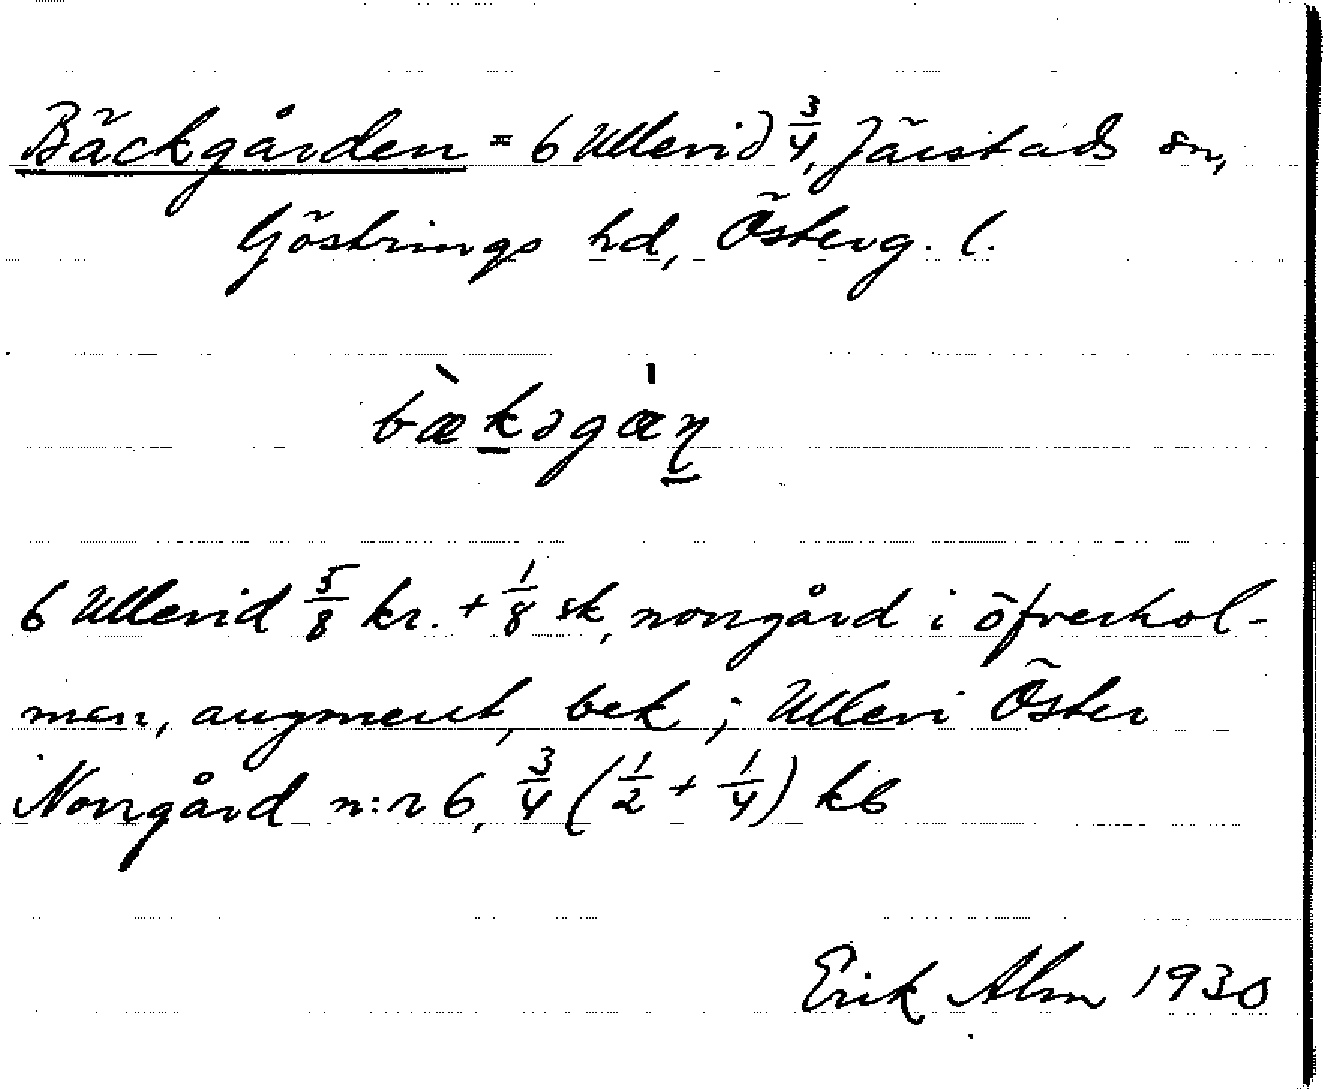 Bäckgården = 6 Ullevid 3/4, Järstads sn,
Göstrings hd, Österg. l.
bæ̀kəgæ̀ɳ
6 Ullevid 5/8 kr. + 1/8 sk, norrgård i öfverhol-
men, augment, bek; Ullevi Öster
Norrgård n:r 6, 3/4 (1/2 + 1/4) kb
Erik Alm 1930